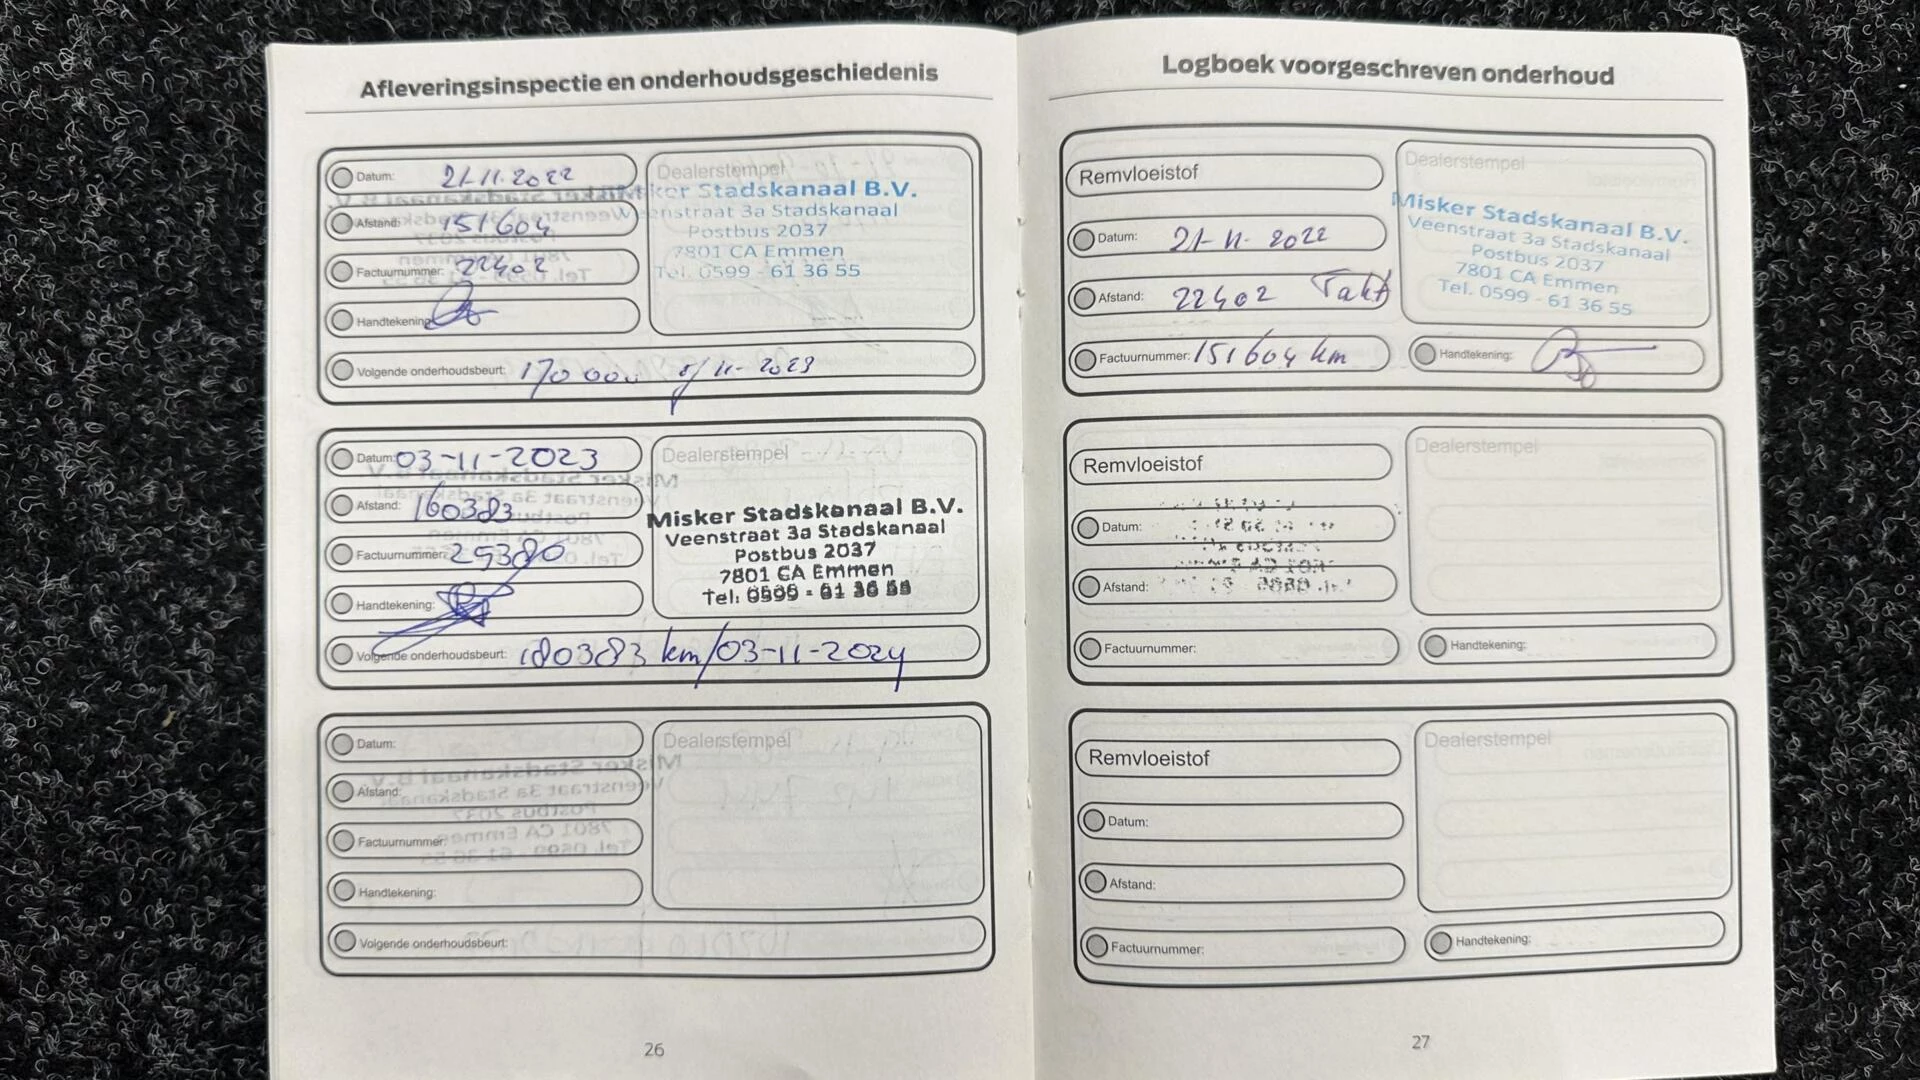 Afleveringsinspectie en onderhoudsgeschiedenis
Datum: 21-11-2022
Afstand: 151604
Factuurnummer: 22402
Handtekening:
Volgende onderhoudsbeurt: 170 000 / 11-2023
Dealerstempel
Misker Stadskanaal B.V.
Veenstraat 3a Stadskanaal
Postbus 2037
7801 CA Emmen
Tel. 0599 - 61 36 55
Datum: 03-11-2023
Afstand: 160383
Factuurnummer: 29380
Handtekening:
Volgende onderhoudsbeurt: 180383 km/03-11-2024
Dealerstempel
Misker Stadskanaal B.V.
Veenstraat 3a Stadskanaal
Postbus 2037
7801 CA Emmen
Tel: 0599 - 61 36 55
Datum:
Afstand:
Factuurnummer:
Handtekening:
Volgende onderhoudsbeurt:
Dealerstempel
26
Logboek voorgeschreven onderhoud
Remvloeistof
Datum: 21-11-2022
Afstand: 22402
Factuurnummer: 151604 km
Dealerstempel
Misker Stadskanaal B.V.
Veenstraat 3a Stadskanaal
Postbus 2037
7801 CA Emmen
Tel. 0599 - 61 36 55
Handtekening:
Remvloeistof
Datum:
Afstand:
Factuurnummer:
Dealerstempel
Handtekening:
Remvloeistof
Datum:
Afstand:
Factuurnummer:
Dealerstempel
Handtekening:
27